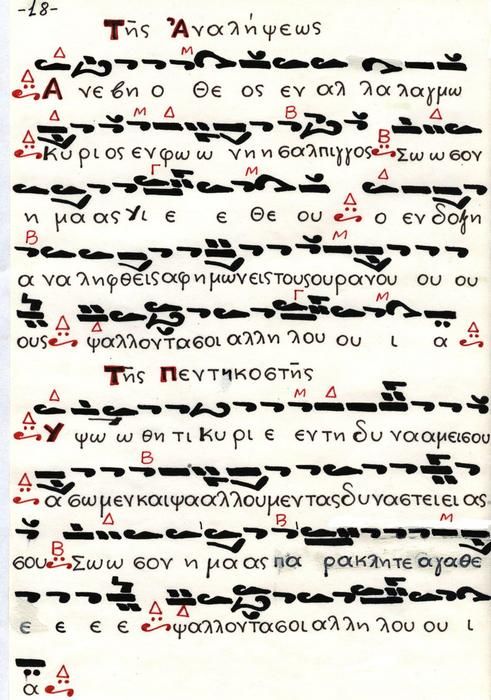 -18-
Τῆς Ἀναλήψεως
Α νε βη ο Θε ος εν αλ λα λαγμω
Κυ ρι ος εν φω ω νη η σαλπιγγος Σω ω σον
η μα ας Υι ε ε Θε ου ο εν δοξη
α να ληφθεις αφ η μων εις τους ουρανου ου ου
ους ψαλλοντας οι αλλη λου ου ι α
Τῆς Πεντηκοστῆς
Υ ψω ω θη τι Κυ ρι ε εν τη δυ να α μει σου
α σω μεν και ψα αλλου μεν τας δυ ναστει ει ας
σου Σω ω σον η μα ας πα ρακλητε αγαθε
ε ε ε ε ψαλλοντας οι αλλη λου ου ι
α